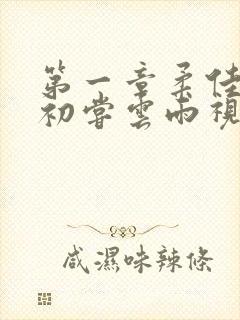 第一章柔佳
初嘗雲雨視
咸濕味辣條